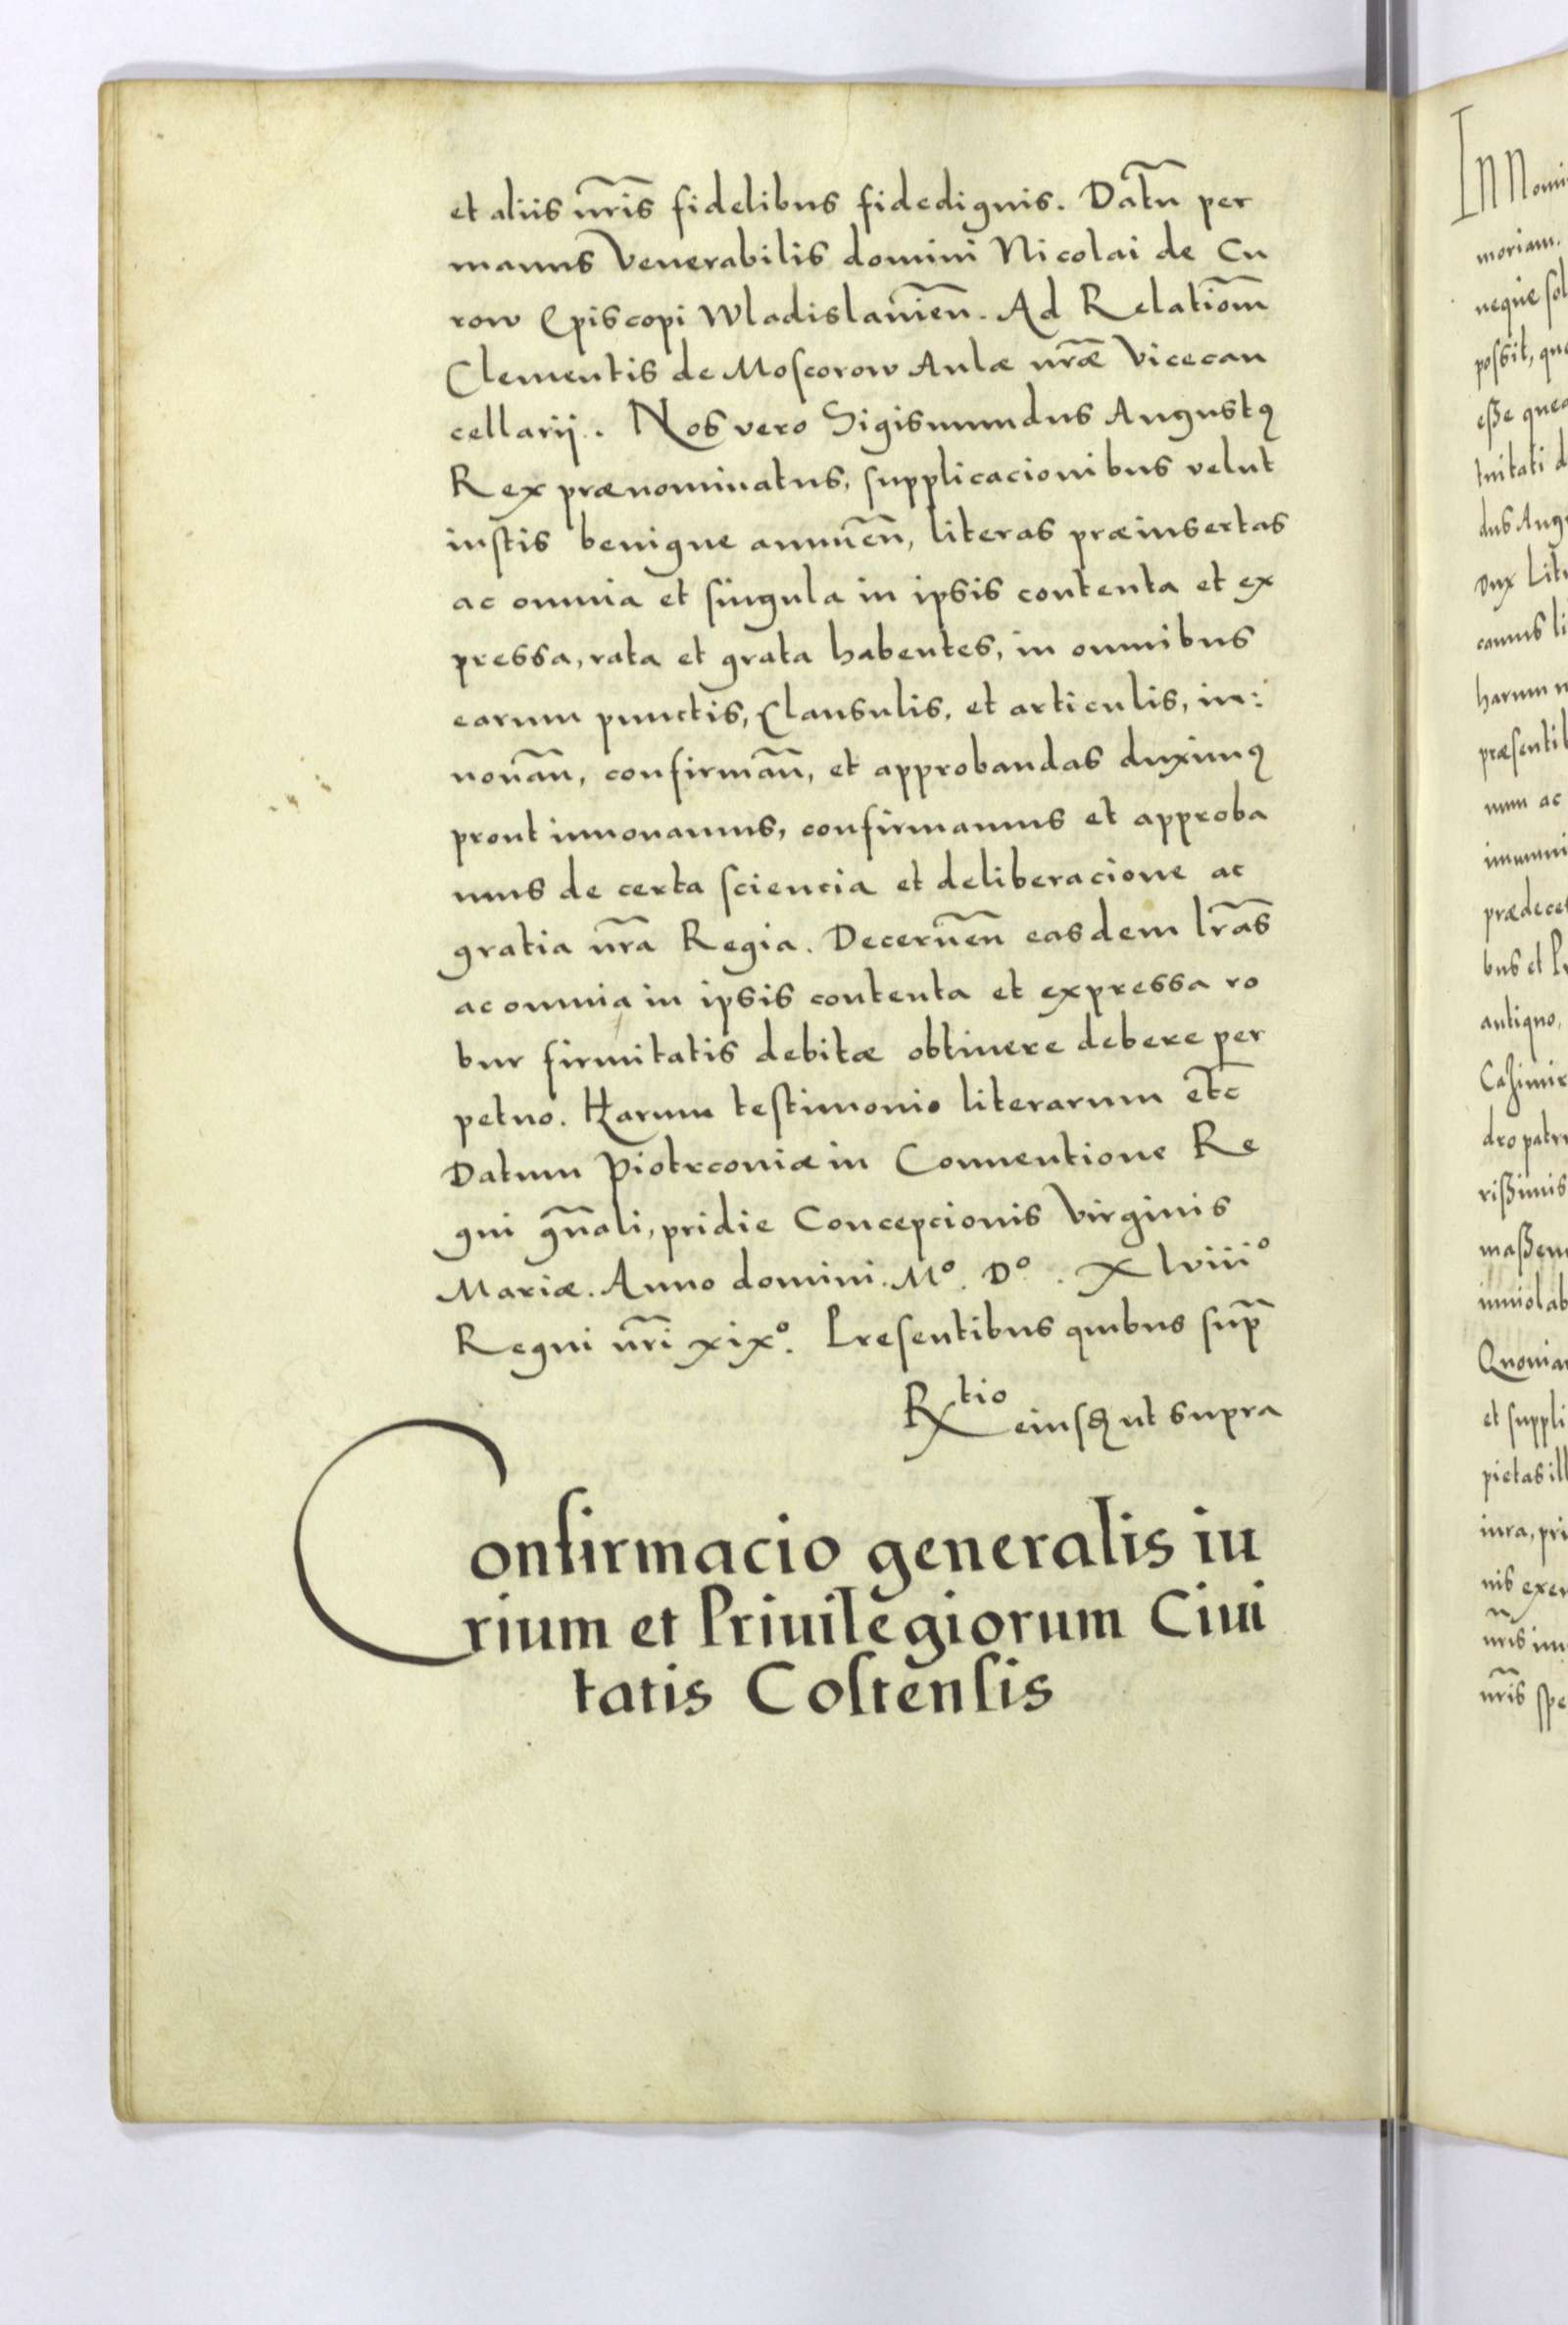 et aliis nr̃is fidelibus fidedignis. Datũ per
manus Venerabilis domini Nicolai de Cu
row Episcopi Wladislauień. Ad Relatiom̃
Clementis de Moscorow Aulæ nr̃æ Vicecan
cellarij. Nos vero Sigismundus Augustꝯ
Rex prænominatus, supplicacionibus velut
iustis benigne annueñ, literas præinsertas
ac omnia et singula in ipsis contenta et ex
pressa, rata et grata habentes, in omnibus
earum punctis, Clausulis, et articulis, in:
nouañ, confirmañ, et approbandas duximꝯ
prout innouamus, confirmamus et approba
mus de certa sciencia et deliberacione ac
gratia nr̃a Regia. Decerneñ easdem lr̃as
ac omnia in ipsis contenta et expressa ro
bur firmitatis debitæ obtinere debere per
petuo. Harum testimonio literarum etc̃
Datum Piotrconiæ in Conuentione Re
gni gñali, pridie Concepcionis Virginis
Mariæ. Anno domini. Mº. Dº. Xlviiiº
Regni nr̃i xixº. Presentibus quibus sup̃
Rtio eiusdꝫ ut supra
Confirmacio generalis iu
rium et Priuilegiorum Ciui
tatis Costensis
In Nomi
moriam.
neque sol
possit, que
esse quea
tuitati d
dus Aug
Dux Lit
camus li
harum
præsentib
num ac
immuni
prædece
bus et Pr
antiquo,
Cazimir
dro patr
rissimis
massem
inuiolab
Quonia
et suppli
pietas ill
iura, pri
nis exem
nr̃is im
nr̃is spe